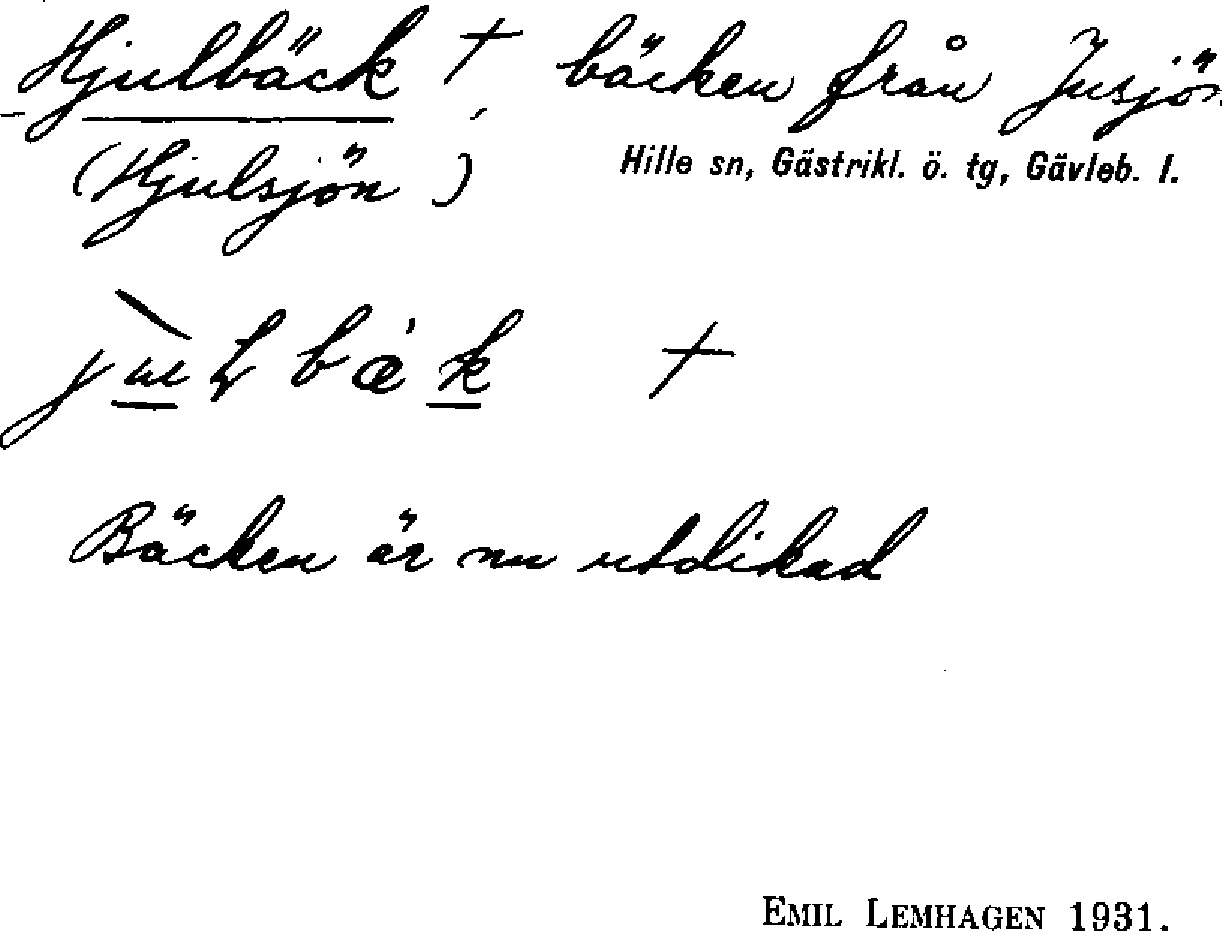 Hjulbäck † bäcken från Jusjö
(Hjulsjön)
Hille sn, Gästrikl. ö. tg, Gävleb. l.
†
Bäcken är nu utdikad
EMIL LEMHAGEN 1931.